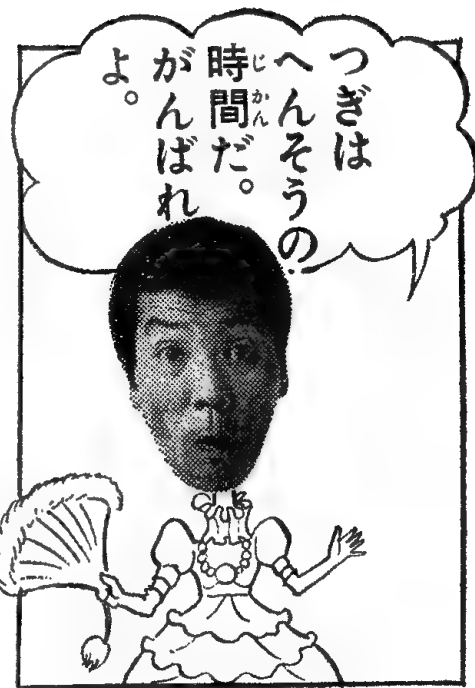 つぎは
へんそうの
時間だ。
がんばれ
よ。